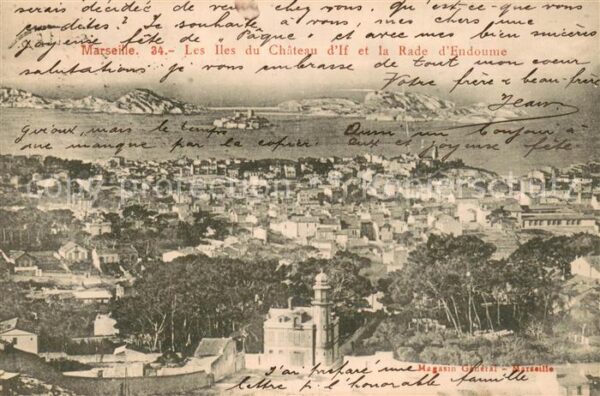 serais décidée de venir chez vous. Qu'est-ce que vous
en dites? Je souhaite à vous, mes chers une
joyeuse fête de "Pâque" et avec mes bien sincères
Marseille. 34.- Les Iles du Château d'If et la Rade d'Endoume
salutations je vous embrasse de tout mon coeur
Votre frère & beau-frère
Jean
mais le temps
me manque par la copier.
Aussi un bonjour à
eux et joyeuse fête
copyright protection
J'ai préparé une
lettre p. l'honorable famille
Magasin Général - Marseille